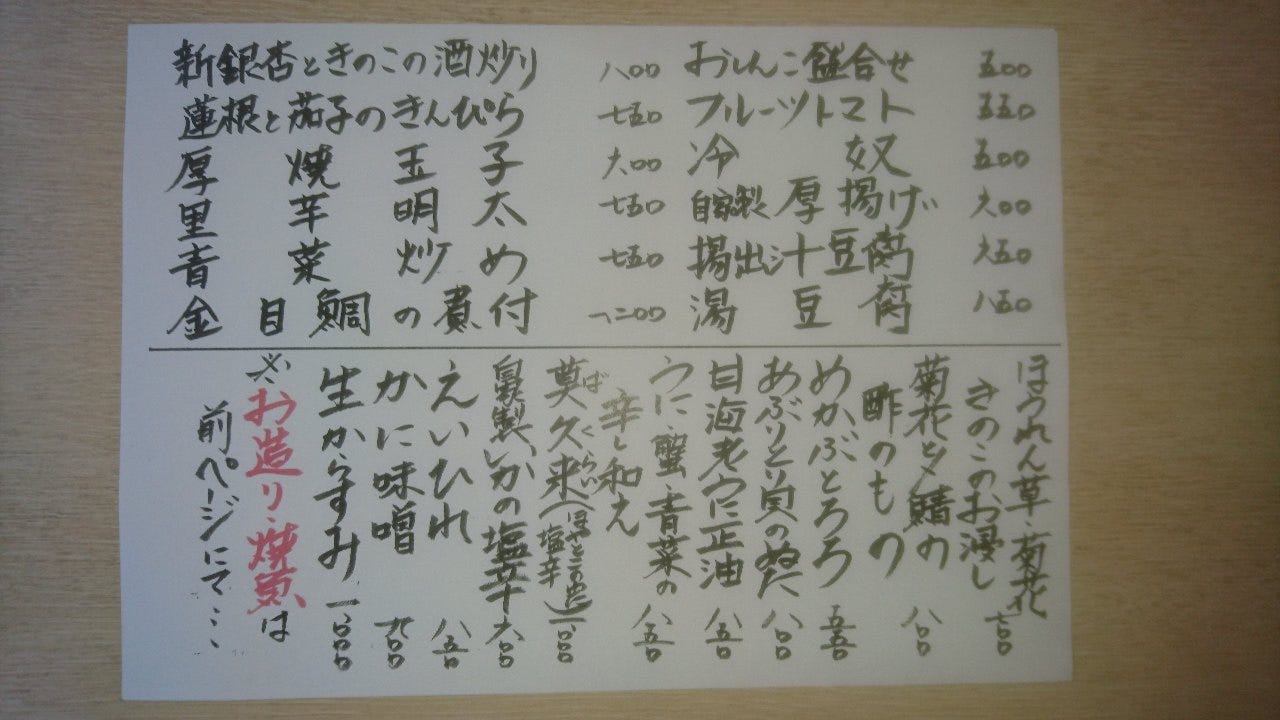 新銀杏ときのこの酒炒り 八00
蓮根と茄子のきんぴら 七五0
厚焼玉子 六00
里芋明太 七五0
青菜炒め 七五0
金目鯛の煮付 一二00
おしんこ盛合せ 五00
フルーツトマト 五五0
冷奴 五00
自家製厚揚げ 六00
揚出汁豆腐 六五0
湯豆腐 八五0
ほうれん草・菊花
きのこのお浸し 七00
菊花と〆鯖の
酢のもの 八00
めかぶとろろ 五五0
あぶりとり貝のぬた 八00
甘海老うに正油 八五0
うに・蟹・青菜の
辛し和え 八五0
莫久来(ほやとこのわた塩辛) 一、000
ばくらい
自家製いかの塩辛 六00
えいひれ 八五0
かに味噌 九00
生からすみ 一、000
※お造り・焼魚は
前ページにて…